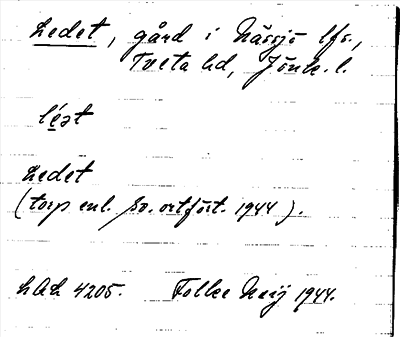 Ledet, gård i Nässjö lfs.,
Tveta hd, Jönk. l.
léət
Ledet
(torp enl. sv. ortsfört. 1944).
4205. Folke 1944.